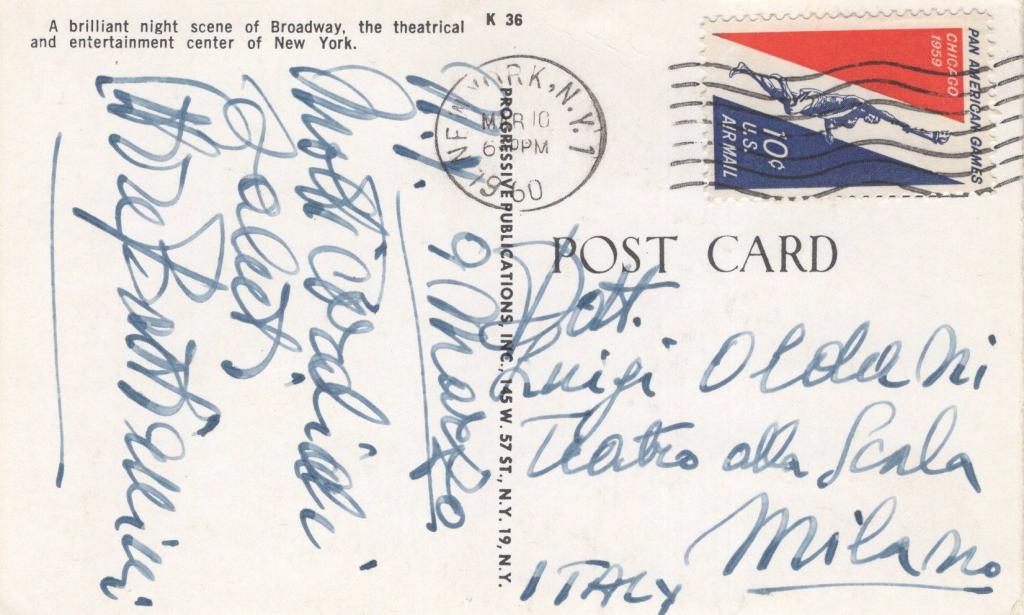 A brilliant night scene of Broadway, the theatrical
and entertainment center of New York.
K 36
N.Y. 9 Marzo
Molti Cordiali
Saluti
PROGRESSIVE PUBLICATIONS, INC., 145 W. 57 ST., N.Y. 19, N.Y.
NEW YORK, N.Y. 1
MAR 10
6 PM
1960
PAN AMERICAN GAMES
CHICAGO
1959
10¢
U.S.
AIRMAIL
POST CARD
Dott.
Luigi Oldani
Teatro alla Scala
Milano
ITALY